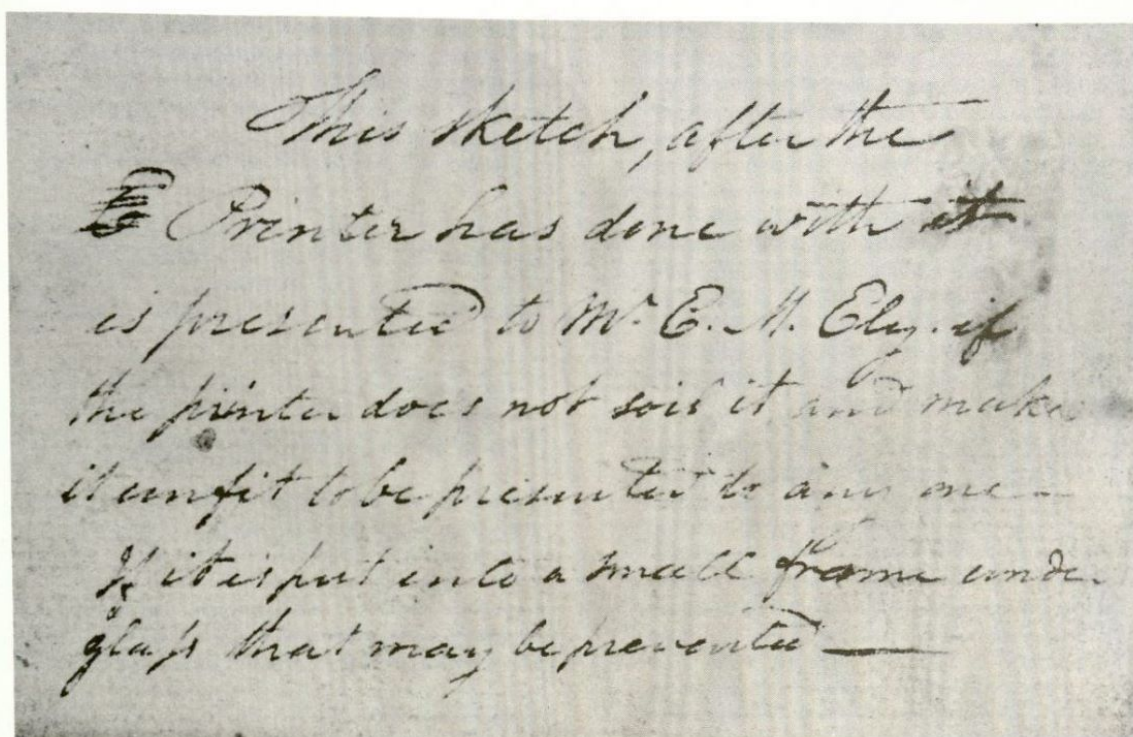 This sketch, after the
Printer has done with it
is presented to Mr. E. M. Ely. if
the printer does not soil it and make
it unfit to be presented to any one —
If it is put into a small frame under
glass that may be prevented —